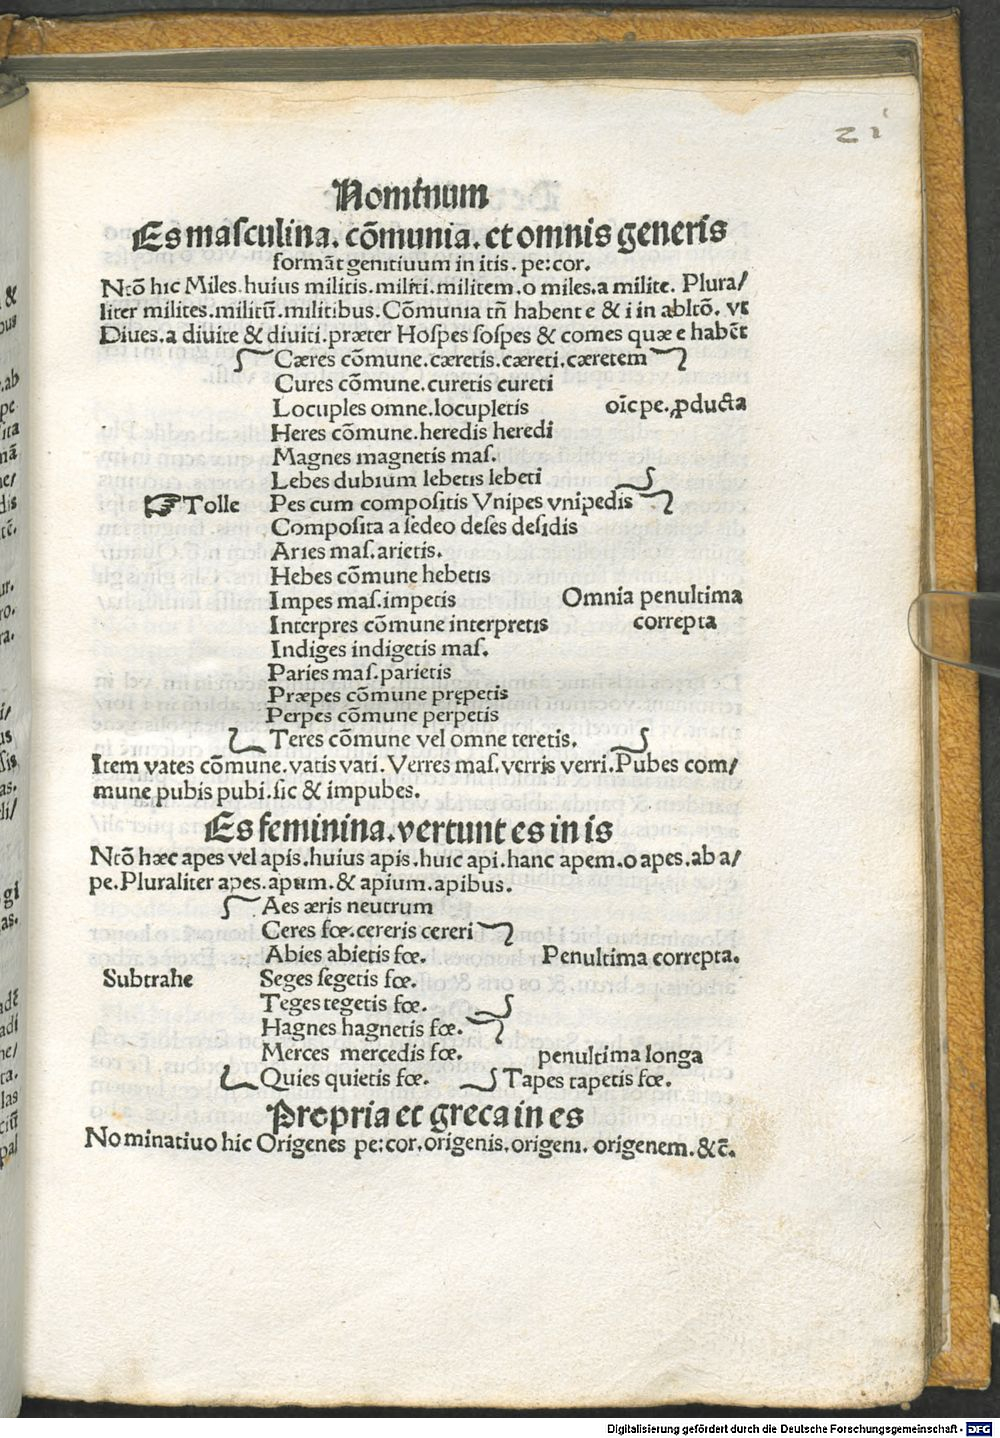 21
Nominum
Es masculina. cōmunia. et omnis generis
formāt genitiuum in itis. pe: cor.
Ntō hic Miles. huius militis. militi. militem. o miles. a milite. Plura/
liter milites. militū. militibus. Cōmunia tñ habent e & i in abltō. vt
Diues. a diuite & diuiti. præter Hoſpes ſoſpes & comes quæ e habēt
Cæres cōmune. cæretis. cæreti. cæretem
Cures cōmune. curetis cureti
Locuples omne. locupletis oīc pe. ꝓducta
Heres cōmune. heredis heredi
Magnes magnetis maſ.
Lebes dubium lebetis lebeti
☞ Tolle Pes cum compoſitis Vnipes vnipedis
Compoſita a ſedeo deſes deſidis
Aries maſ. arietis.
Hebes cōmune hebetis
Impes maſ. impetis Omnia penultima
Interpres cōmune interpretis correpta
Indiges indigetis maſ.
Paries maſ. parietis
Præpes cōmune prępetis
Perpes cōmune perpetis
Teres cōmune vel omne teretis.
Item vates cōmune. vatis vati. Verres maſ. verris verri. Pubes com/
mune pubis pubi. ſic & impubes.
Es feminina. vertunt es in is
Ntō hæc apes vel apis. huius apis. huic api. hanc apem. o apes. ab a/
pe. Pluraliter apes. apum. & apium. apibus.
Aes æris neutrum
Ceres fœ. cereris cereri
Abies abietis fœ. Penultima correpta.
Subtrahe Seges ſegetis fœ.
Teges tegetis fœ.
Hagnes hagnetis fœ.
Merces mercedis fœ. penultima longa
Quies quietis fœ. Tapes tapetis fœ.
Propria et greca in es
Nominatiuo hic Origenes pe: cor. origenis. origeni. origenem. &c̄.
Digitalisierung gefördert durch die Deutsche Forschungsgemeinschaft - DFG